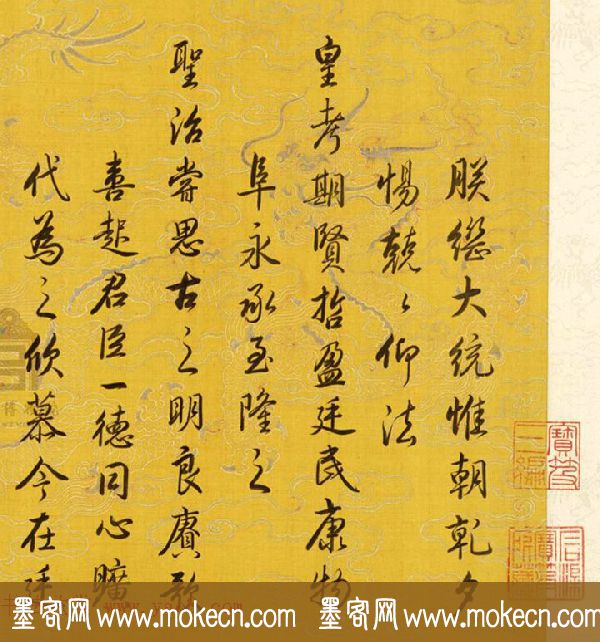 朕繼大統惟朝乾夕
惕兢〻仰法
皇考期賢哲盈廷民康物
阜永承至隆之
聖治嘗思古之明良賡歌
喜起君臣一德同心曠
代為之欣慕今在廷
墨客网 www.mokecn.com 墨客网 www.mokecn.com